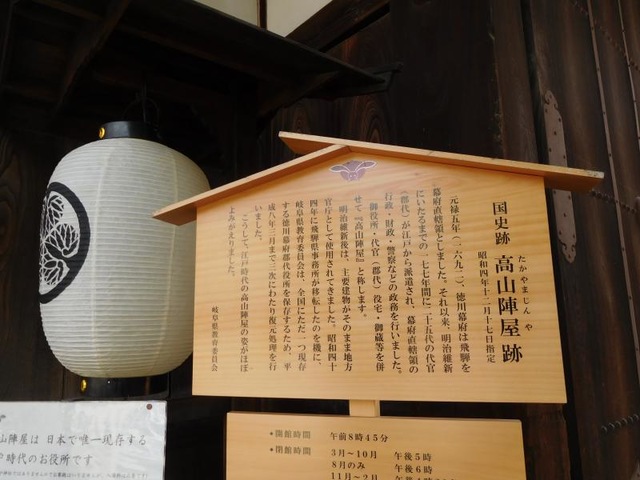 国史跡 高山陣屋跡
たかやまじんや
昭和四年十二月十七日指定
元禄五年(一六九二)、徳川幕府は飛騨を
幕府直轄領としました。それ以来、明治維新
にいたるまでの一七七年間に二十五代の代官
(郡代)が江戸から派遣され、幕府直轄領の
行政・財政・警察などの政務を行いました。
御役所・代官(郡代)役宅・御蔵等を併
せて『高山陣屋』と称します。
明治維新後は、主要建物がそのまま地方
官庁として使用されてきました。昭和四十
四年に飛騨県事務所が移転したのを機に、
岐阜県教育委員会は、全国にただ一つ現存
する徳川幕府郡代役所を保存するため、平
成八年三月まで三次にわたり復元処理を行
いました。
こうして、江戸時代の高山陣屋の姿がほぼ
よみがえりました。
岐阜県教育委員会
山陣屋は 日本で唯一現存する
時代のお役所です
●開館時間 午前8時45分
●閉館時間 3月〜10月 午後5時
8月のみ 午後6時
11月〜2月